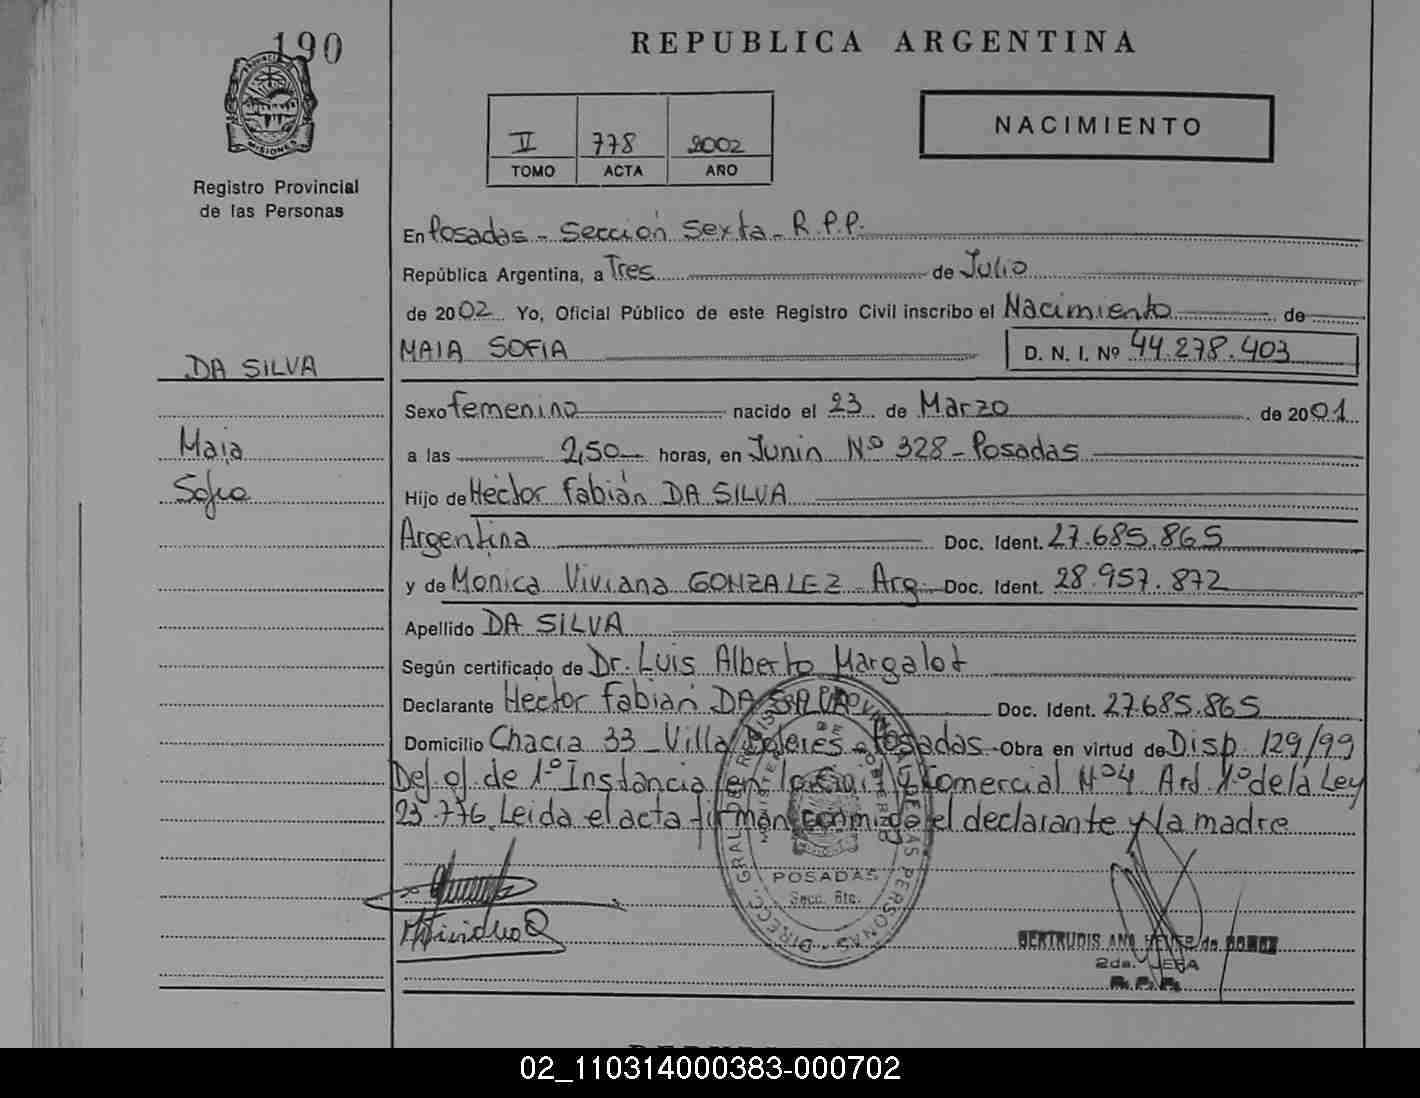 190
REPUBLICA ARGENTINA
NACIMIENTO
II 778 2002
TOMO ACTA AÑO
MISIONES
Registro Provincial
de las Personas
En Posadas - Sección Sexta - R.P.P.
República Argentina, a Tres de Julio
de 2002 Yo, Oficial Público de este Registro Civil inscribo el Nacimiento de
MAIA SOFIA D. N. I. Nº 44.278.403
DA SILVA
Maia
Sofia
Sexo femenino nacido el 23 de Marzo de 2001
a las 2,50 horas, en Junin Nº 328 - Posadas
Hijo de Héctor Fabián DA SILVA
Argentina Doc. Ident. 27.685.865
y de Monica Viviana GONZALEZ Arg. Doc. Ident. 28.957.872
Apellido DA SILVA
Según certificado de Dr. Luis Alberto Margalot
Declarante Hector Fabian DA SILVA Doc. Ident. 27.685.865
Domicilio Chacra 33 - Villa Dolores - Posadas - Obra en virtud de Disp 129/99
Def. of. de 1º Instancia en lo Civil y Comercial Nº 4 Art. 1º de la Ley
23.776. Leida el acta firman conmigo el declarante y la madre
POSADAS
Secc. 6ta.
GERTRUDIS ANA de GOMEZ
2da. JEFA
R.P.P.
02_110314000383-000702